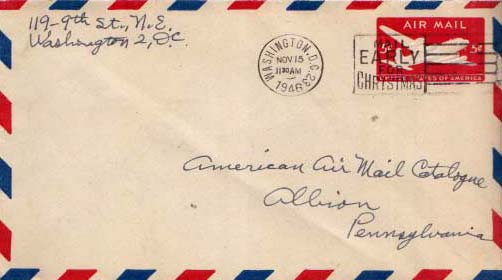 119-9th St., N.E.
Washington 2, D.C.
WASHINGTON, D.C. 23
NOV 15
11 30 AM
1946
MAIL
EARLY
FOR
CHRISTMAS
AIR MAIL
5¢
UNITED STATES OF AMERICA
American Air Mail Catalogue
Albion
Pennsylvania